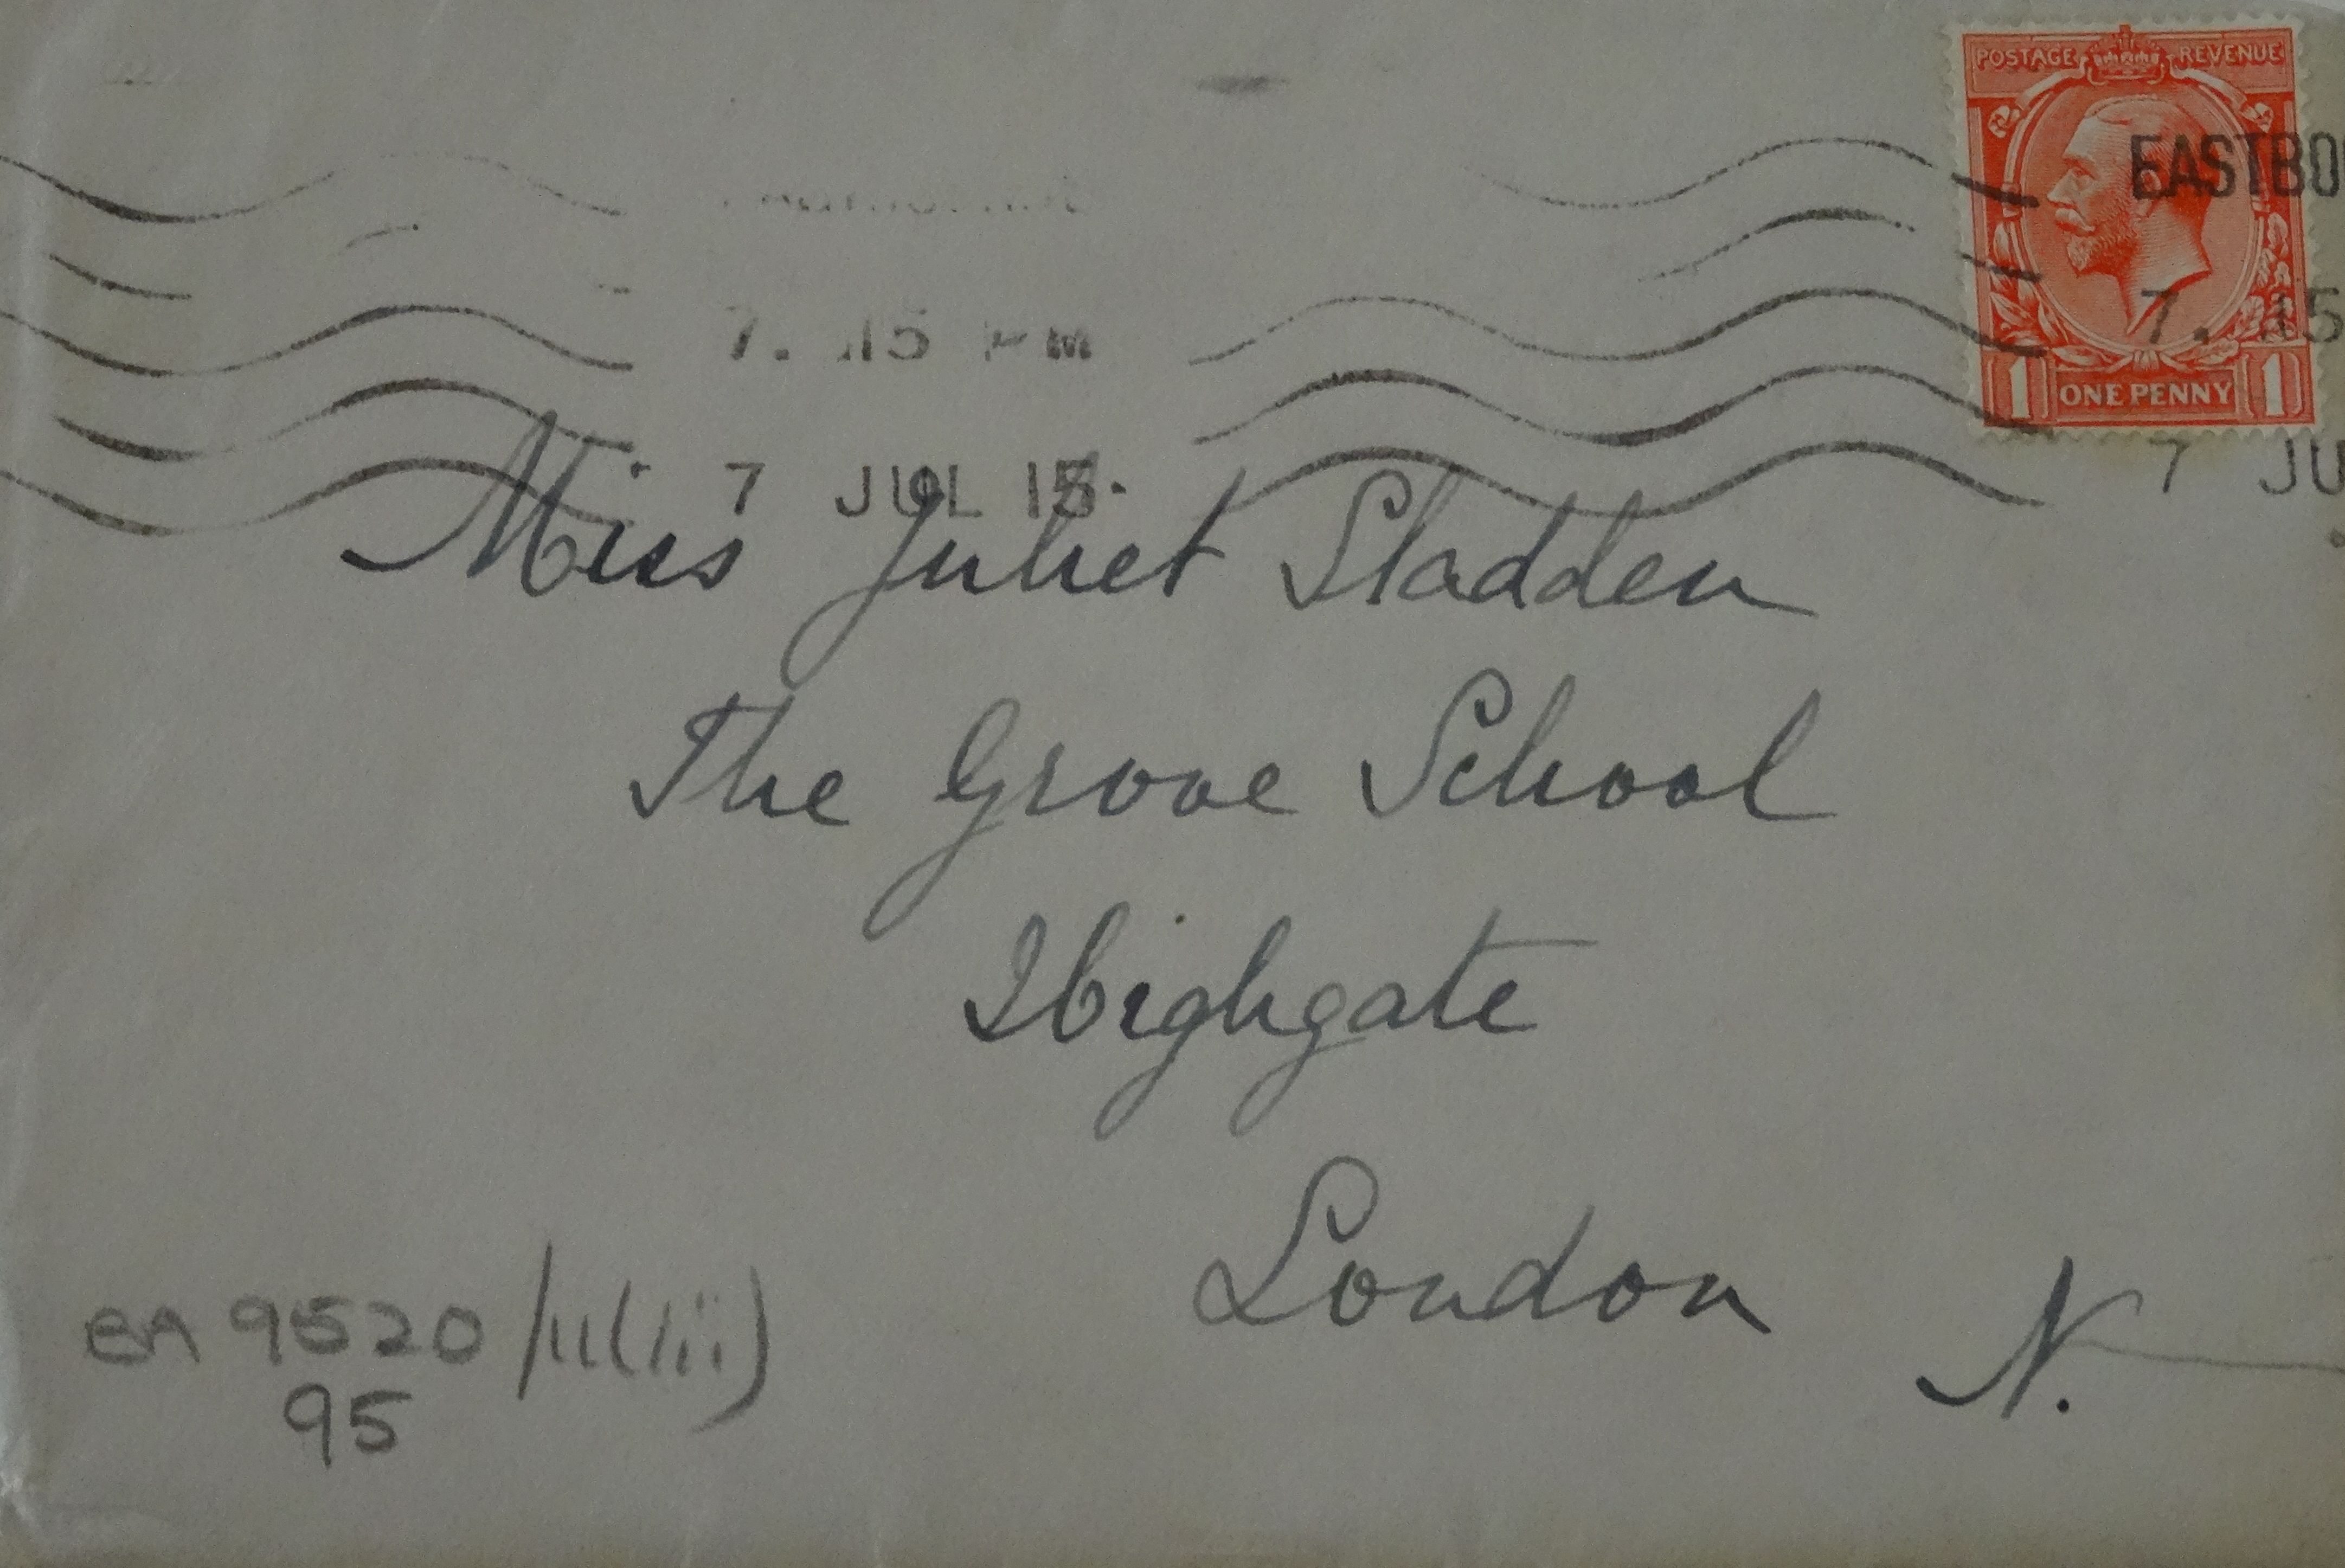 POSTAGE REVENUE
EASTBO
7. 15 PM
7. 15
1 ONE PENNY 1
7 JUL 15
7 JU
Miss Juliet Sladden
The Grove School
Highgate
London
N.
9520
95